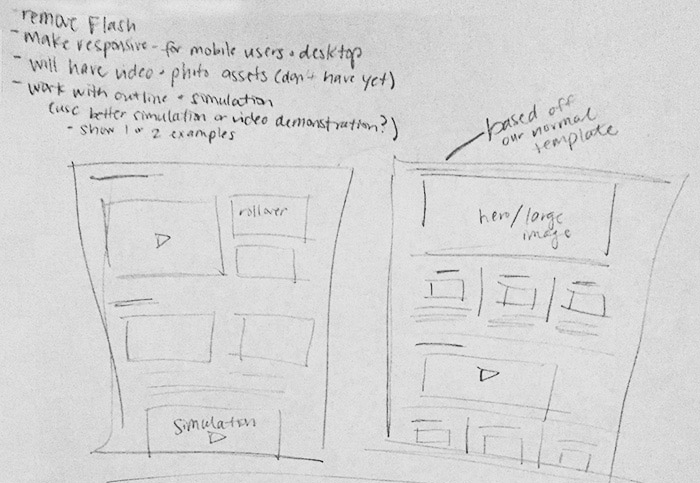 remove Flash
- Make responsive - for mobile users + desktop
- will have video + photo assets (don't have yet)
- work with outline + simulation
(use better simulation or video demonstration?)
- show 1 or 2 examples
based off
our normal
template
rollover
simulation
hero/large
image